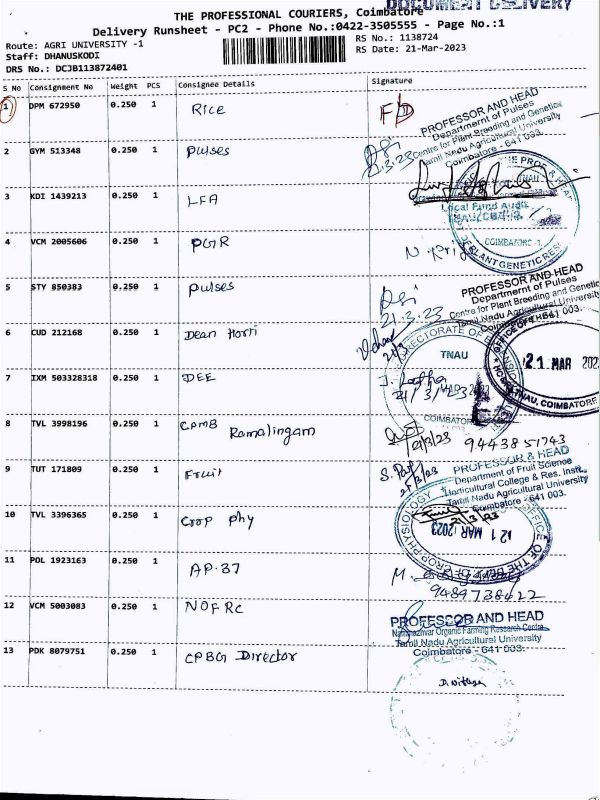 DOCUMENT DELIVERY
THE PROFESSIONAL COURIERS, Coimbatore
Delivery Runsheet - PC2 - Phone No.:0422-3505555 - Page No.:1
Route: AGRI UNIVERSITY -1
RS No.: 1138724
Staff: DHANUSKODI
RS Date: 21-Mar-2023
DRS No.: DCJB113872401
S No Consignment No Weight PCS Consignee Details Signature
1 DPM 672950 0.250 1 Rice
PROFESSOR AND HEAD
Departmernt of Pulses
Centre for Plant Breeding and Genetics
Tamil Nadu Agricultural University
Coimbatore - 641 003.
2 GYM 513348 0.250 1 Pulses
21.3.23
3 KDI 1439213 0.250 1 LFA
Local Fund Audit
TNAU
COIMBATORE
PLANT GENETIC RES
4 VCM 2005606 0.250 1 PGR
5 STY 850383 0.250 1 Pulses
21.3.23
PROFESSOR AND HEAD
Departmernt of Pulses
Centre for Plant Breeding and Genetics
Tamil Nadu Agricultural University
003.
6 CUD 212168 0.250 1 Dean Horti
DIRECTORATE OF
TNAU
21 MAR 202
TNAU, COIMBATORE
7 IXM 503328318 0.250 1 DEE
21/3/23
COIMBATORE
8 TVL 3998196 0.250 1 CPMB Ramalingam
21/3/23 9443851743
9 TUT 171809 0.250 1 Fruit
21/3/23
PROFESSOR & HEAD
Department of Fruit Science
Horticultural College & Res. Instt.,
Tamil Nadu Agricultural University
Coimbatore - 641 003.
10 TVL 3396365 0.250 1 Crop Phy
21/3/23
21 MAR 2023
CROP PHYSIOLOGY
OFFICE OF THE
11 POL 1923163 0.250 1 AP-37
12 VCM 5003083 0.250 1 NOFRC
PROFESSOR AND HEAD
Nammazhvar Organic Farming Research Centre
Tamil Nadu Agricultural University
Coimbatore - 641 003.
13 PDK 8079751 0.250 1 CPBG Director